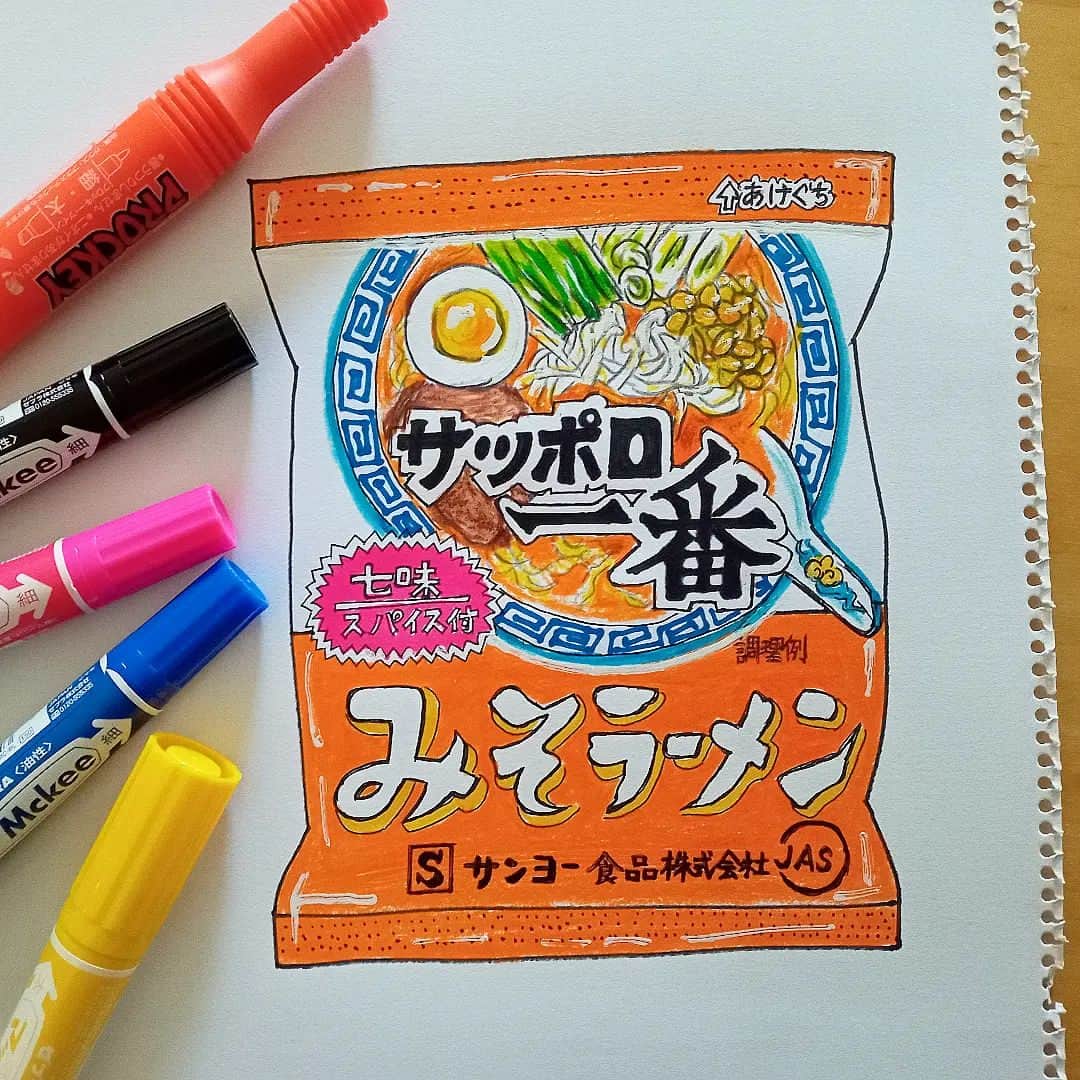 あけぐち
サッポロ
一番
七味
スパイス付
調理例
みそラーメン
S サンヨー食品株式会社 JAS
PROCKEY
ckee 細
細
Mckee 細
〈油性〉